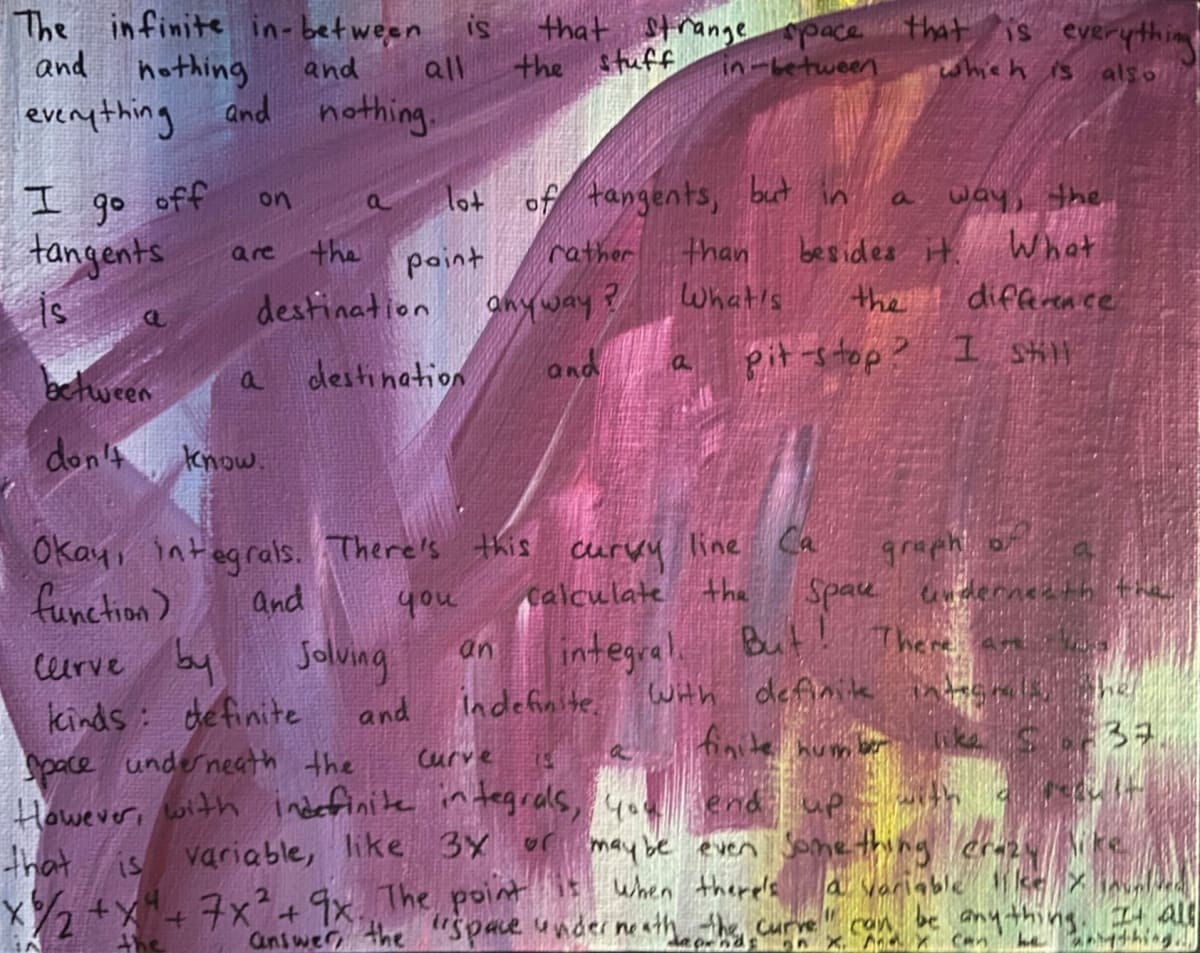 The infinite in-between is that strange space that is everything
and nothing and all the stuff in-between which is also
everything and nothing.
I go off on a lot of tangents, but in a way, the
tangents are the point rather than besides it. What
is a destination anyway? What's the difference
between a destination and a pit-stop? I still
don't know.
Okay, integrals. There's this curvy line (a graph of a
function) and you calculate the space underneath the
curve by solving an integral. But! There are two
kinds: definite and indefinite. With definite integrals, the
space underneath the curve is a finite number like 5 or 37.
However, with indefinite integrals, you end up with a result
that is variable, like 3x or maybe even something crazy like
x⁶/2 + x⁴ + 7x² + 9x. The point is when there's a variable like x involved
in the answer, the "space underneath the curve" can be anything. It all
depends on x. And x can be anything.